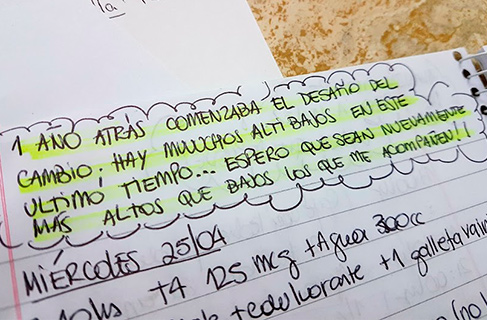 1ª
1 AÑO ATRÁS COMENZABA EL DESAÑO DEL
CAMBIO; HAY MUUCHOS ALTIBAJOS EN ESTE
ULTIMO TIEMPO... ESPERO QUE SEAN NUEVAMENTE
MÁS ALTOS QUE BAJOS LOS QUE ME ACOMPAÑEN!!
MIÉRCOLES 25/04
T4 125 mcg + Agua 300cc
+ edulcorante + 1 galleta
(no